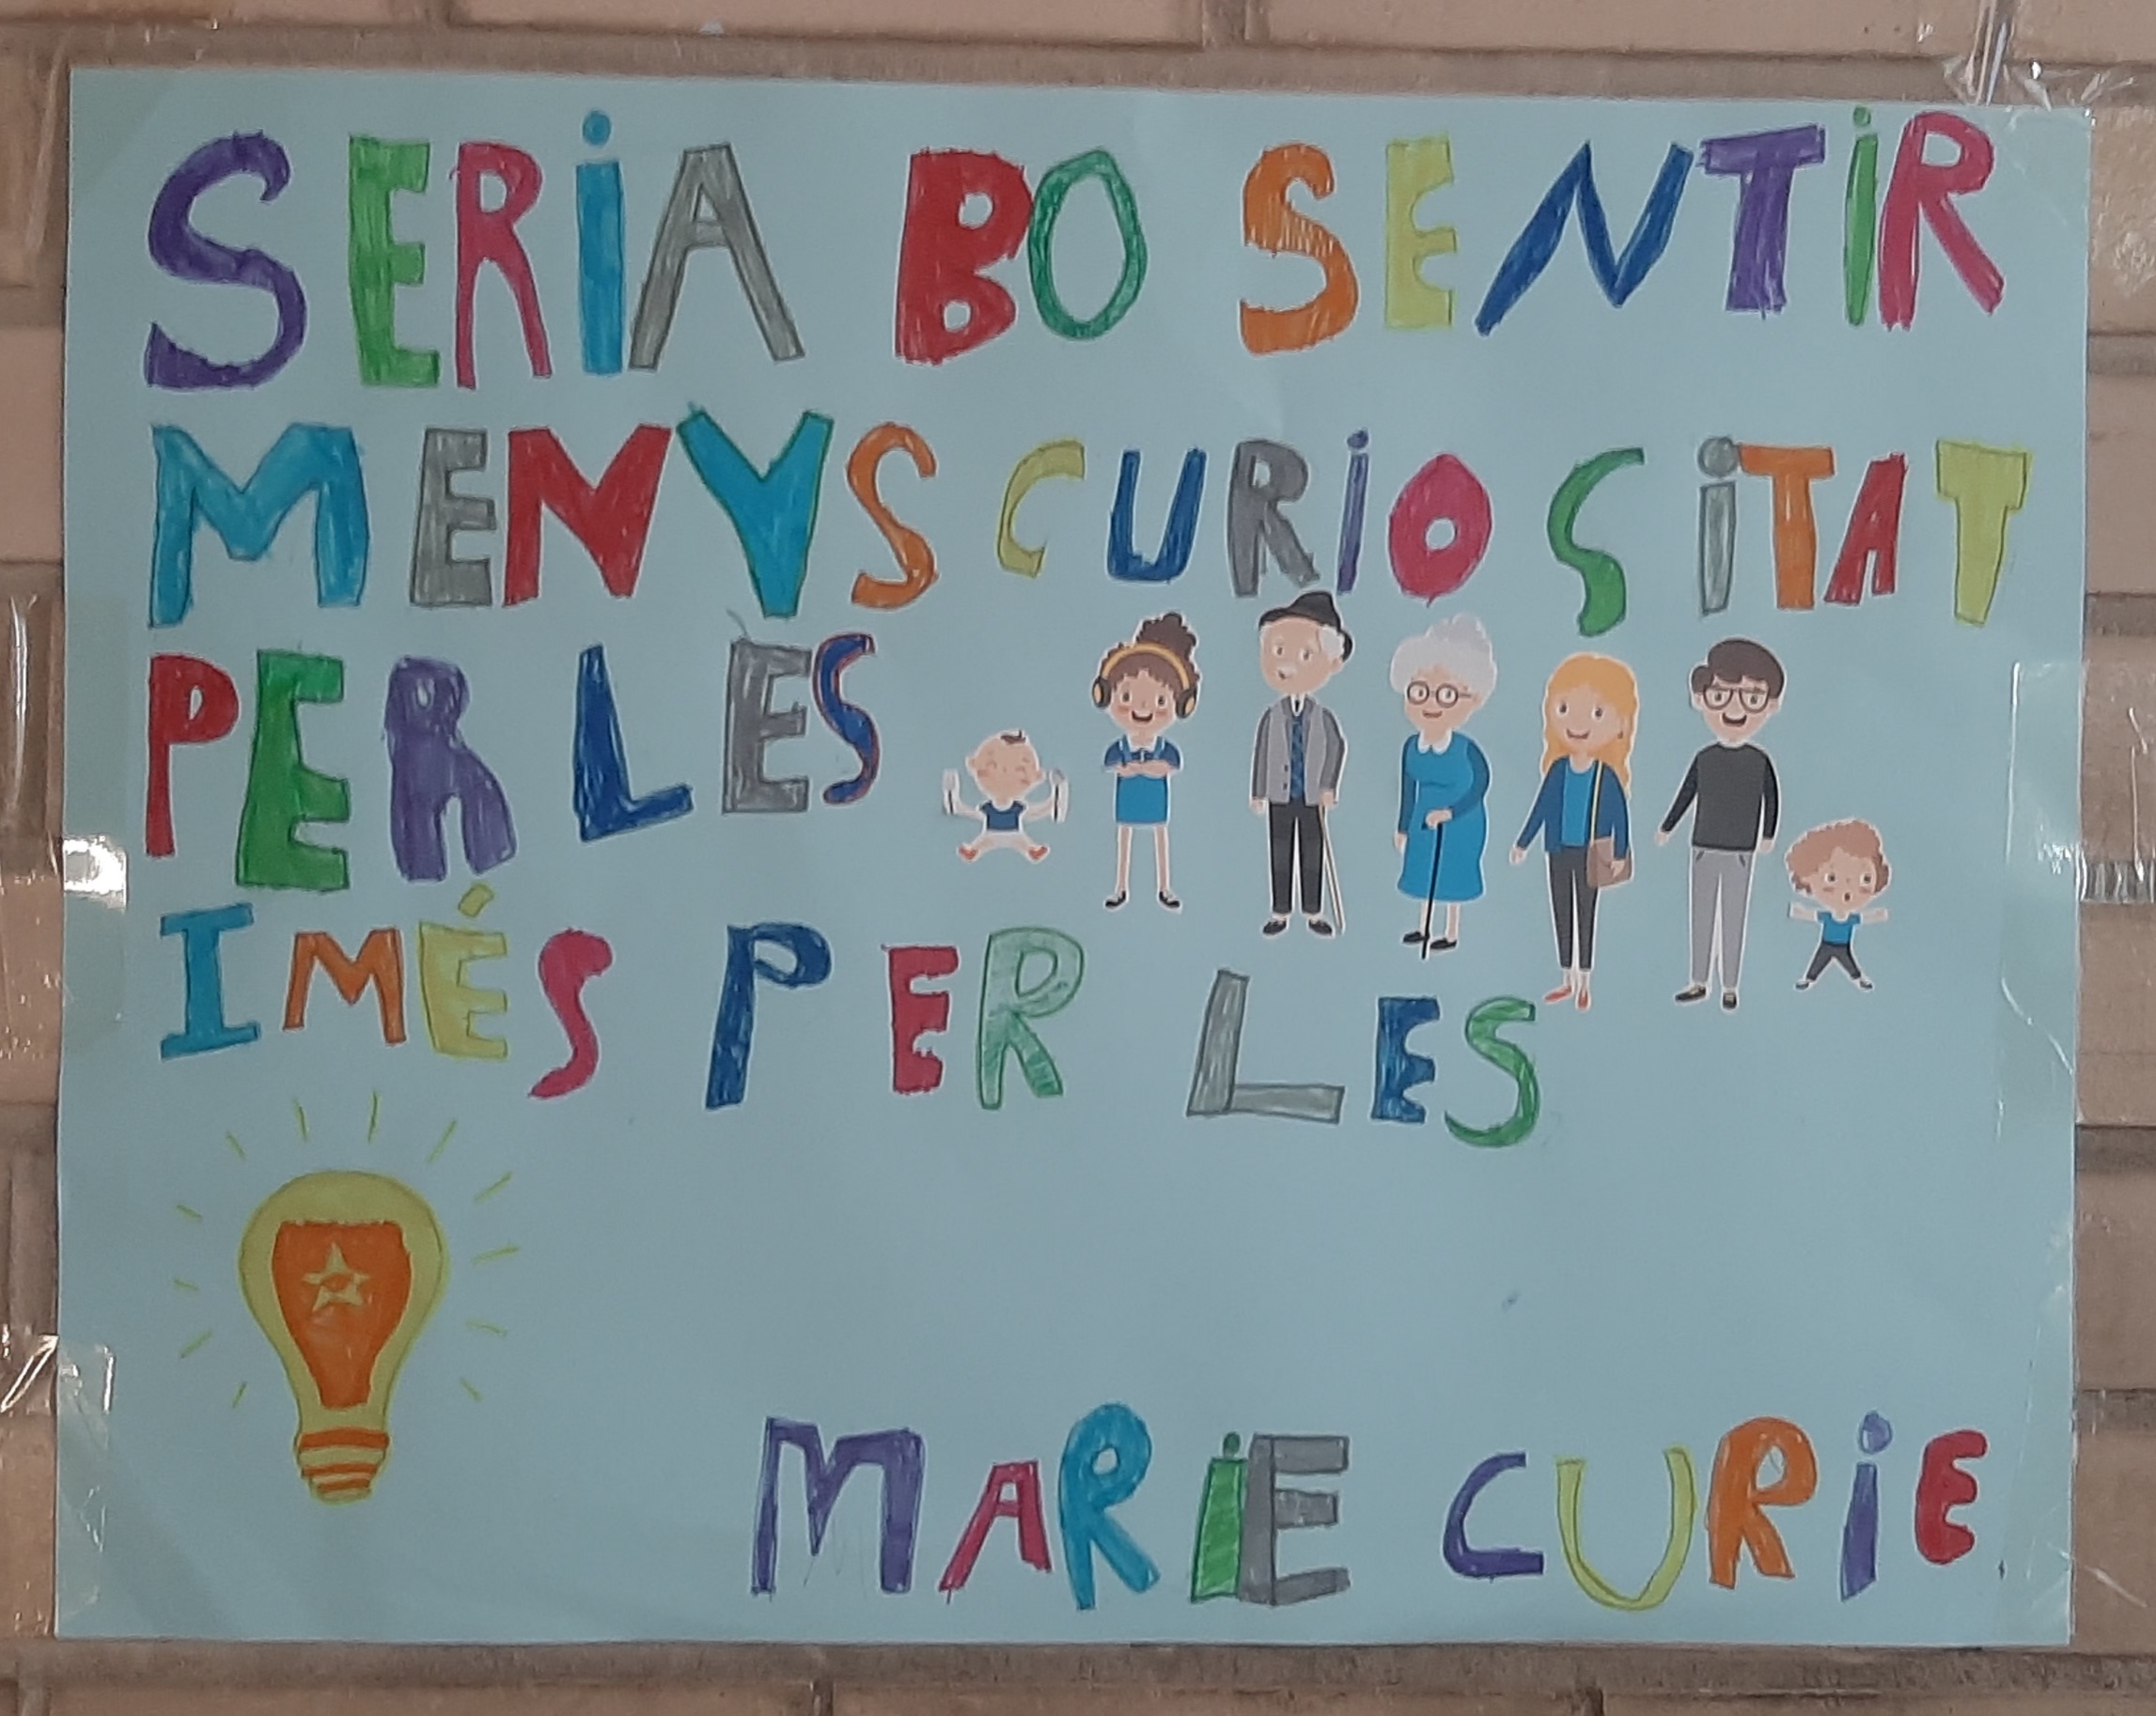 SERiA BO SENTiR
MENYS CURiOSiTAT
PER LES
I MÉS PER LES
MARiE CURiE